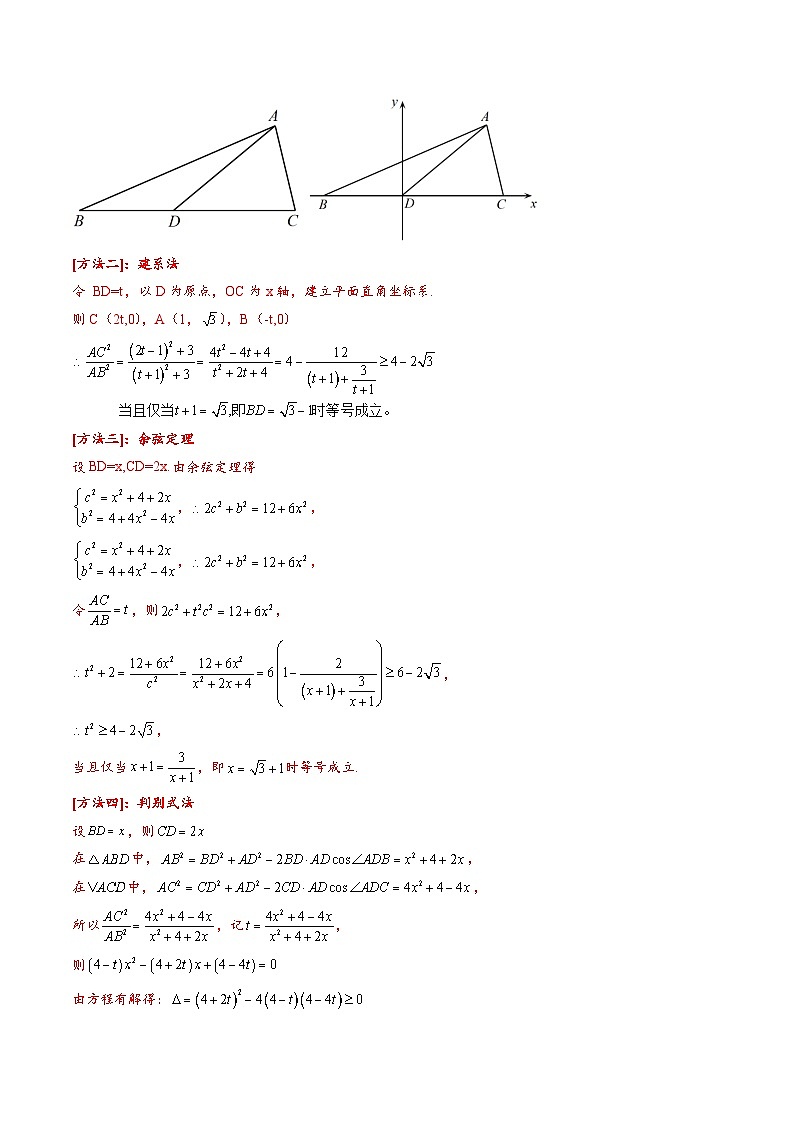 A
B
D
C
y
A
B
D
C
x
[方法二]：建系法
令 BD=t，以 D 为原点，OC 为 x 轴，建立平面直角坐标系.
则 C（2t,0），A（1，√3），B（-t,0）
∴ AC²/AB² = ((2t−1)²+3)/((t+1)²+3) = (4t²−4t+4)/(t²+2t+4) = 4 − 12/((t+1)+3/(t+1)) ≥ 4−2√3
当且仅当t+1=√3,即BD=√3−1时等号成立。
[方法三]：余弦定理
设 BD=x,CD=2x.由余弦定理得
{c²=x²+4+2x
b²=4+4x²−4x，∴2c²+b²=12+6x²，
{c²=x²+4+2x
b²=4+4x²−4x，∴2c²+b²=12+6x²，
令 AC/AB = t，则2c²+t²c²=12+6x²，
∴ t²+2 = (12+6x²)/c² = (12+6x²)/(x²+2x+4) = 6(1 − 2/((x+1)+3/(x+1))) ≥ 6−2√3，
∴ t² ≥ 4−2√3，
当且仅当 x+1=3/(x+1)，即 x=√3+1时等号成立.
[方法四]：判别式法
设BD=x，则CD=2x
在△ABD中，AB²=BD²+AD²−2BD·ADcos∠ADB=x²+4+2x，
在VACD中，AC²=CD²+AD²−2CD·ADcos∠ADC=4x²+4−4x，
所以 AC²/AB² = (4x²+4−4x)/(x²+4+2x)，记 t = (4x²+4−4x)/(x²+4+2x)，
则(4−t)x²−(4+2t)x+(4−4t)=0
由方程有解得：Δ=(4+2t)²−4(4−t)(4−4t)≥0